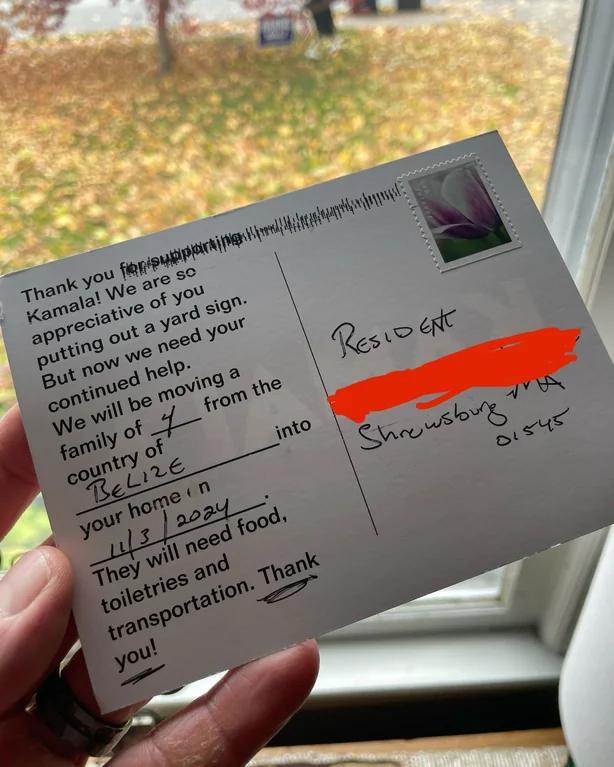 Thank you for supporting
Kamala! We are so
appreciative of you
putting out a yard sign.
But now we need your
continued help.
We will be moving a
family of 4 from the
country of
BELIZE into
your home in
11/3/2024.
They will need food,
toiletries and
transportation. Thank
you!
RESIDENT
Shrewsbury MA
01545